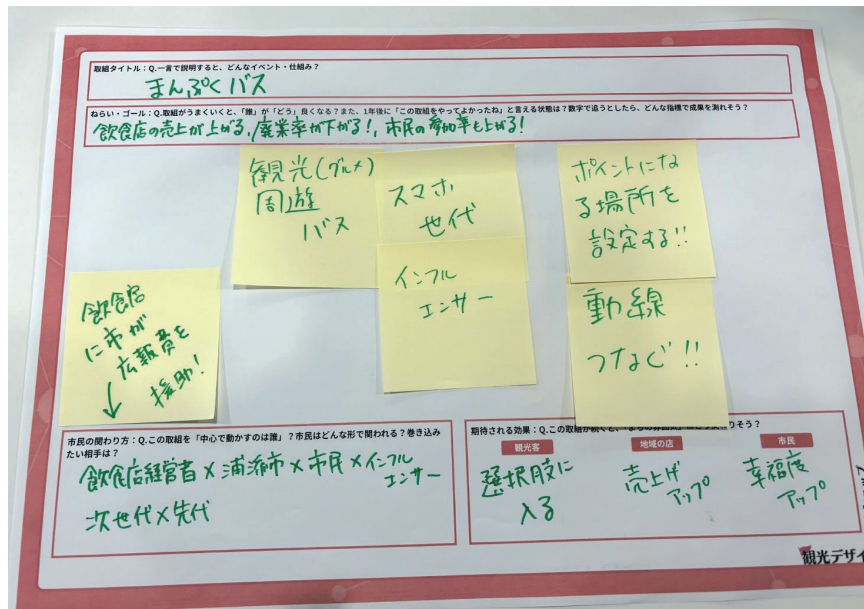 取組タイトル：Q.一言で説明すると、どんなイベント・仕組み？
まんぷくバス
ねらい・ゴール：Q.取組がうまくいくと、「誰」が「どう」良くなる？また、1年後に「この取組をやってよかったね」と言える状態は？数字で追うとしたら、どんな指標で成果を測れそう？
飲食店の売上が上がる、廃業率が下がる!、市民の参加率も上がる!
観光(グルメ)
周遊
バス
スマホ
世代
インフル
エンサー
ポイントにな
る場所を
設定する!!
動線
つなぐ!!
飲食店
に市が
広報費を
援助!
↓
市民の関わり方：Q.この取組を「中心で動かすのは誰」？市民はどんな形で関われる？巻き込み
たい相手は？
飲食店経営者×浦添市×市民×インフル
エンサー
次世代×先代
期待される効果：Q.この取組が続くと、
りそう？
観光客
選択肢に
入る
地域の店
売上げ
アップ
市民
幸福度
アップ
観光デザイ